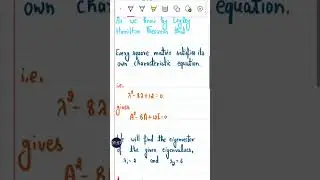 own characteristic equation.
As we know by Cayley
Hamilton Theorem that
Every square matrix satisfies its
own characteristic equation.
i.e.
i.e.
λ² - 8λ + 12 = 0
gives
A² - 8A + 12I = 0
gives
A² - 8
will find the eigenvector
of the given eigenvalues,
λ₁ = 2 and λ₂ = 6